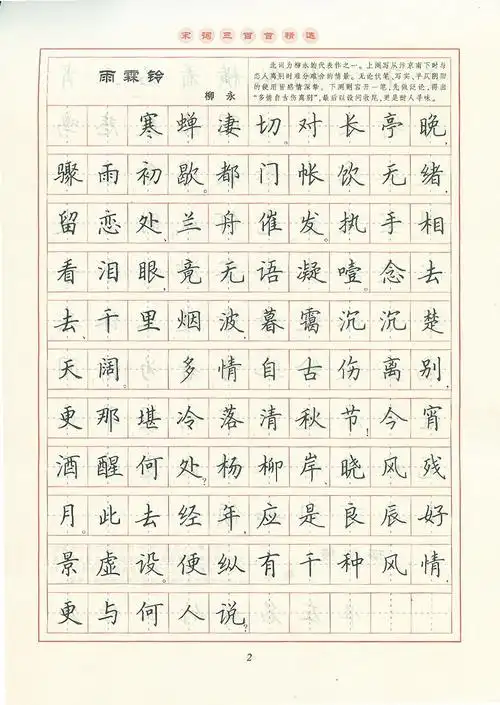 宋词三百首精选
雨霖铃
柳永
此词为柳永的代表作之一。上阕写从汴京南下时与
恋人离别时难分难舍的情景。无论伏笔、写实、平仄阴阳
的使用皆感情深挚。下阕则宕开一笔,先做泛论,得出
“多情自古伤离别”,最后以设问收尾,更是耐人寻味。
寒蝉凄切。对长亭晚,
骤雨初歇。都门帐饮无绪,
留恋处、兰舟催发。执手相
看泪眼,竟无语凝噎。念去
去、千里烟波,暮霭沉沉楚
天阔。 多情自古伤离别,
更那堪、冷落清秋节!今宵
酒醒何处?杨柳岸、晓风残
月。此去经年,应是良辰好
景虚设。便纵有千种风情,
更与何人说?
2